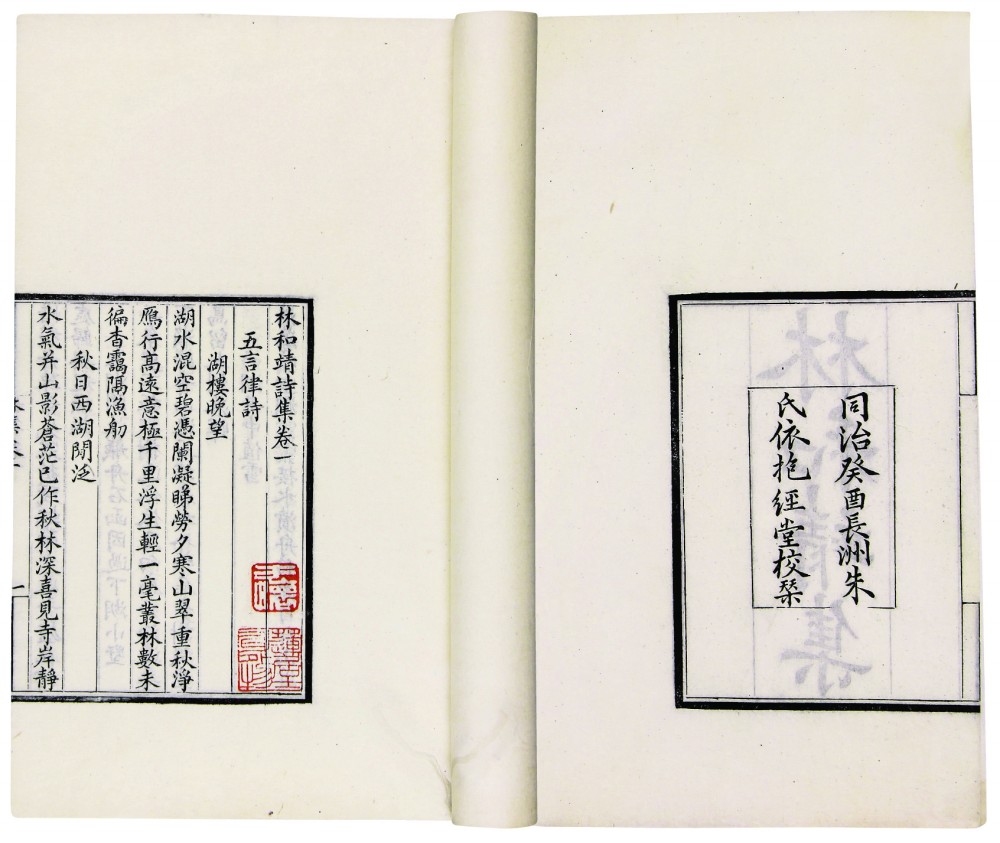 同治癸酉長洲朱
氏依抱經堂校栞
林和靖詩集卷一
五言律詩
湖樓晚望
湖水混空碧憑闌凝睇勞夕寒山翠重秋淨
鴈行高遠意極千里浮生輕一毫叢林數未
徧杳靄隔漁舠
秋日西湖閒泛
水氣并山影蒼茫已作秋林深喜見寺岸靜